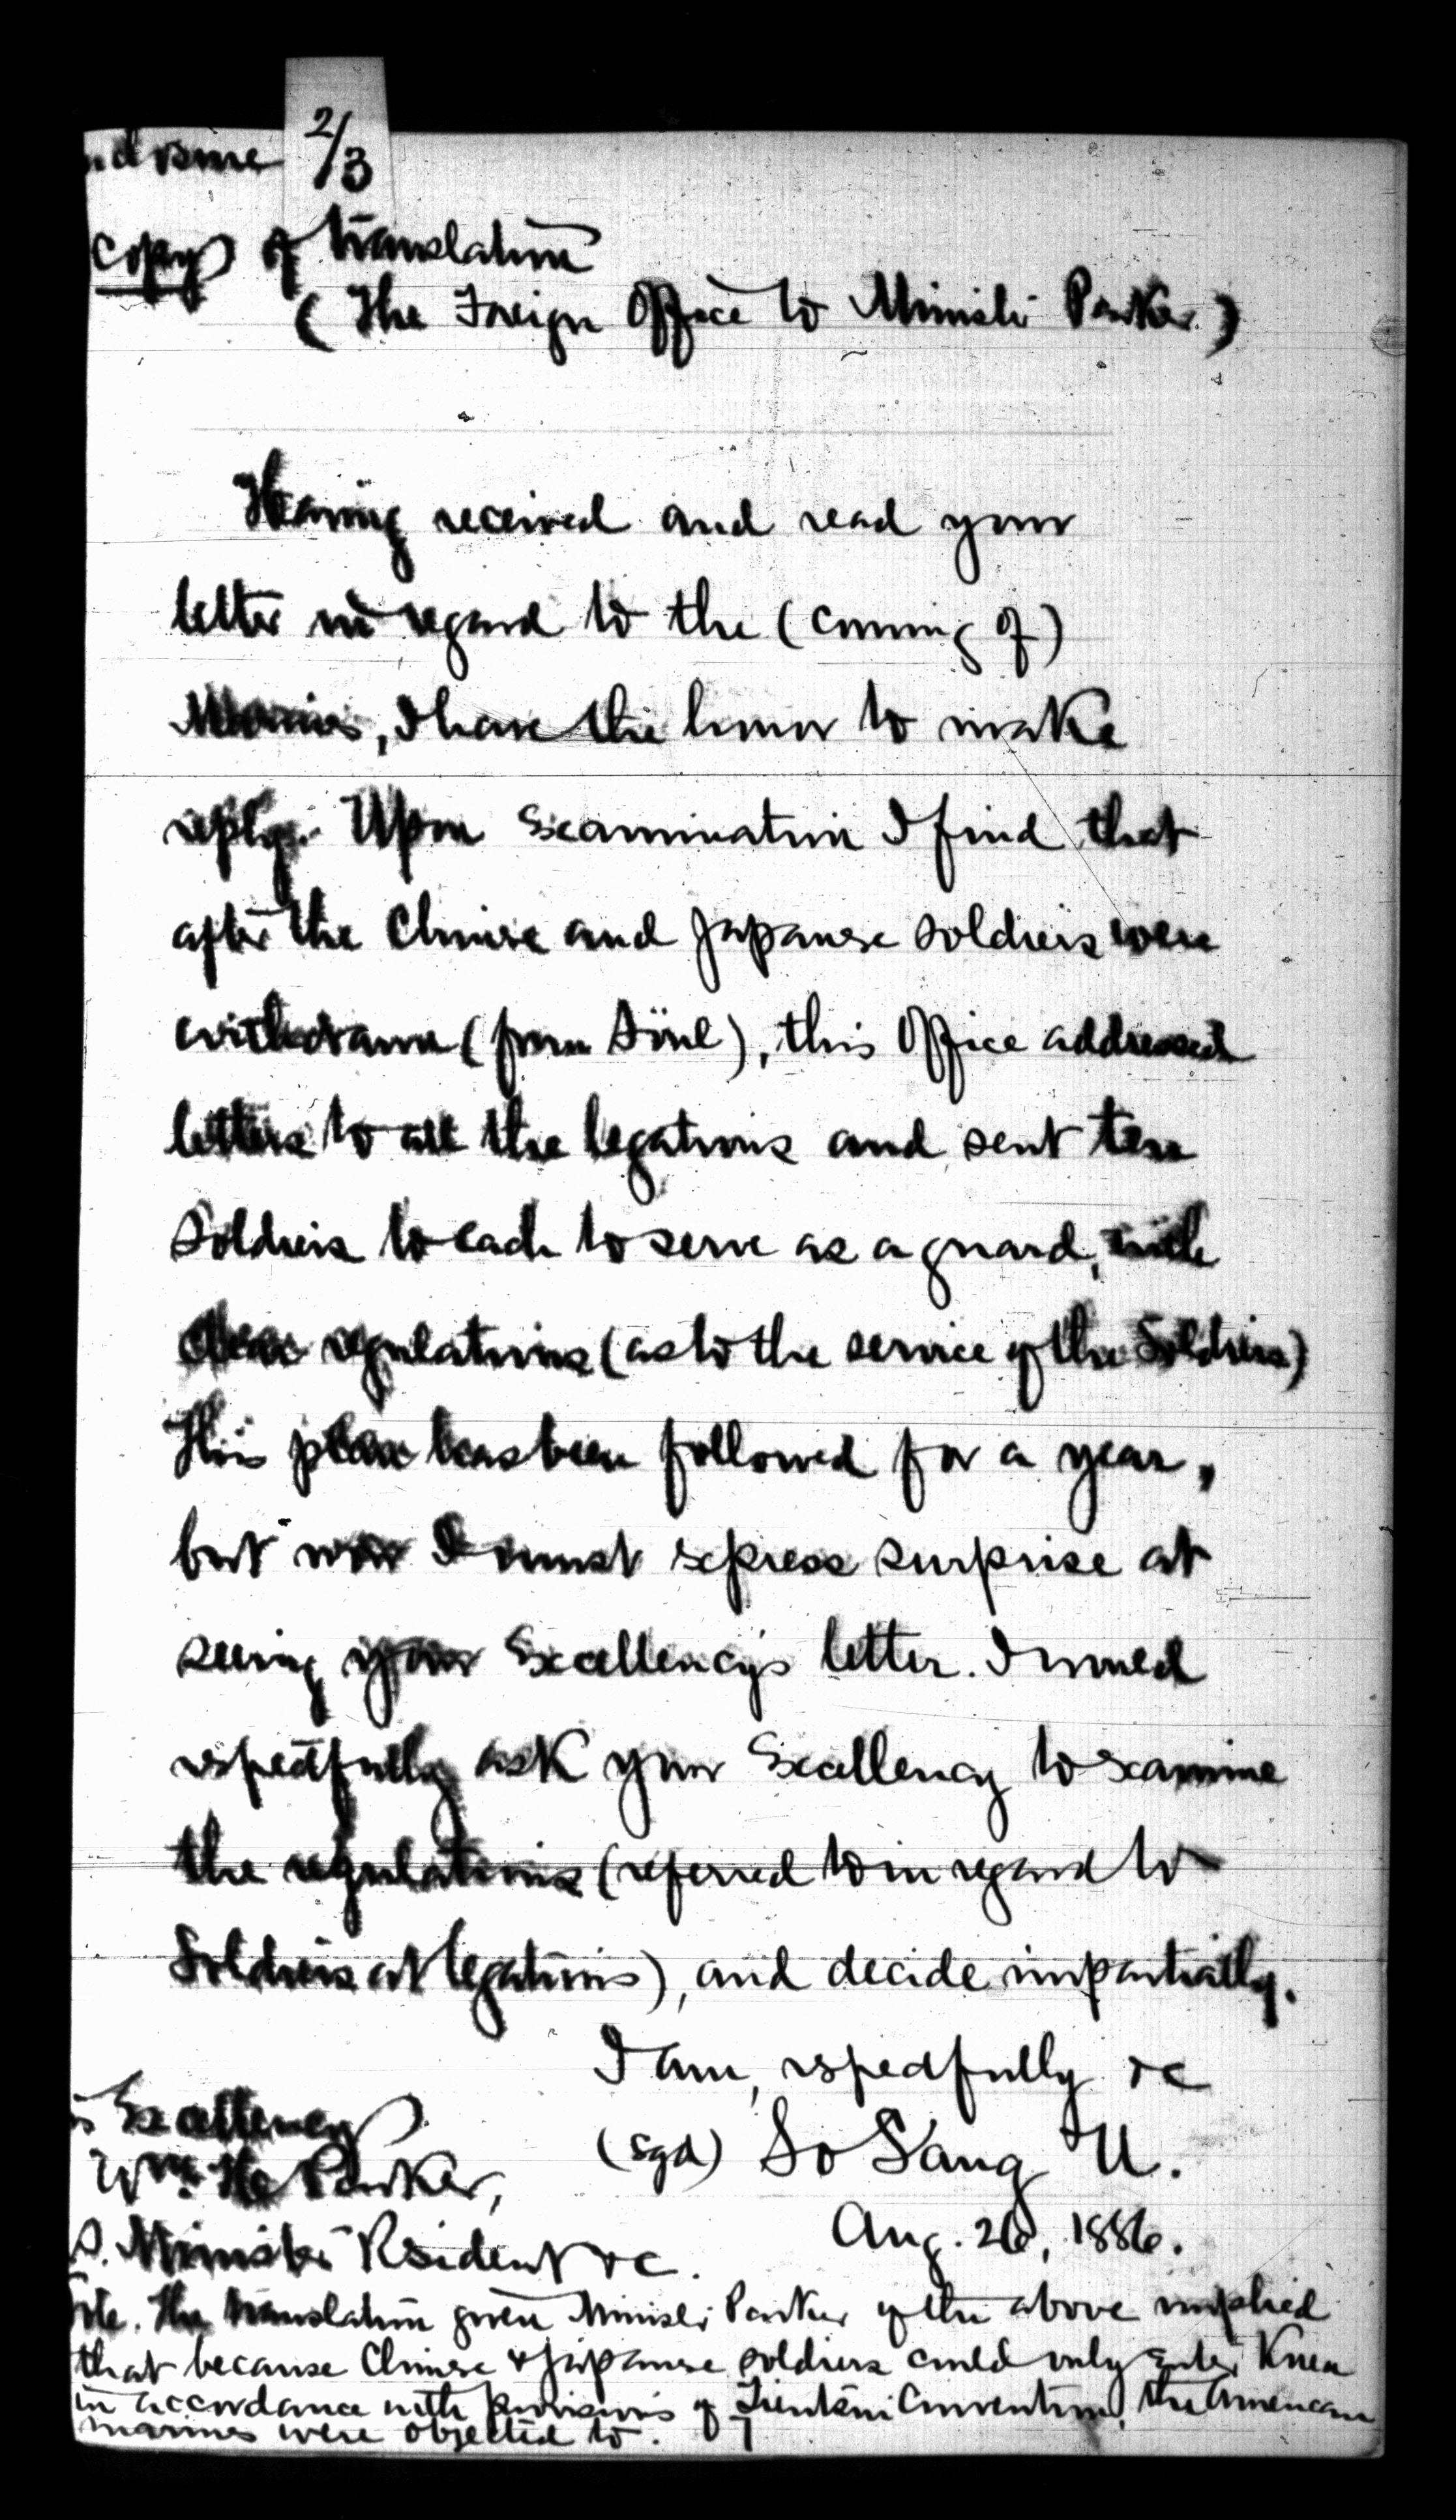 2/3
copy of translation
(The Foreign Office to Minister Parker.)
Having received and read your
letter in regard to the (coming of)
Marines, I have the honor to make
reply. Upon examination I find that
after the Chinese and Japanese soldiers were
withdrawn (from Söul), this Office addressed
letters to all the legations and sent ten
Soldiers to each to serve as a guard, with
clear regulations (as to the service of the Soldiers)
This plan has been followed for a year,
but now I must express surprise at
seeing your Excellency's letter. I would
respectfully ask your Excellency to examine
the regulations (referred to in regard to
Soldiers at legations), and decide impartially.
I am, respectfully &c
(sgd) So Sang U.
Aug. 26, 1886.
Excellency
Wm. H. Parker,
S. Minister Resident &c.
Note. The translation given Minister Parker of the above implied
that because Chinese & Japanese soldiers could only enter Korea
in accordance with provisions of Tientsin Convention, the American
marines were objected to.